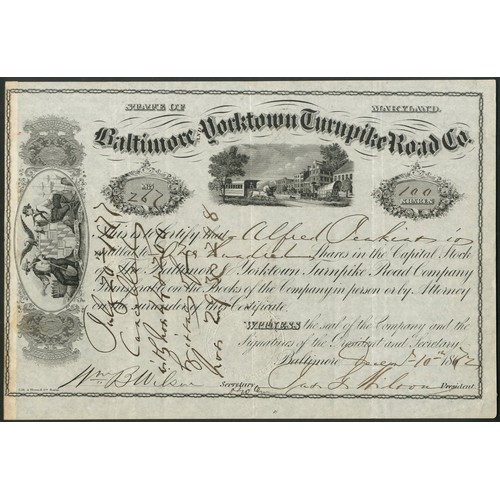 STATE OF MARYLAND.
Baltimore and Yorktown Turnpike Road Co.
No.
267
100
SHARES
This is to Certify that Alfred Jenkins is
entitled to One Hundred Shares in the Capital Stock
of the Baltimore & Yorktown Turnpike Road Company
transferable only on the Books of the Company in person or by Attorney
on surrender of this Certificate.
WITNESS the seal of the Company and the
Signatures of the President and Secretary.
Baltimore 10th 1862
Wm B Wilson Secretary
Wilson President.
July 20 1877
Cancelled